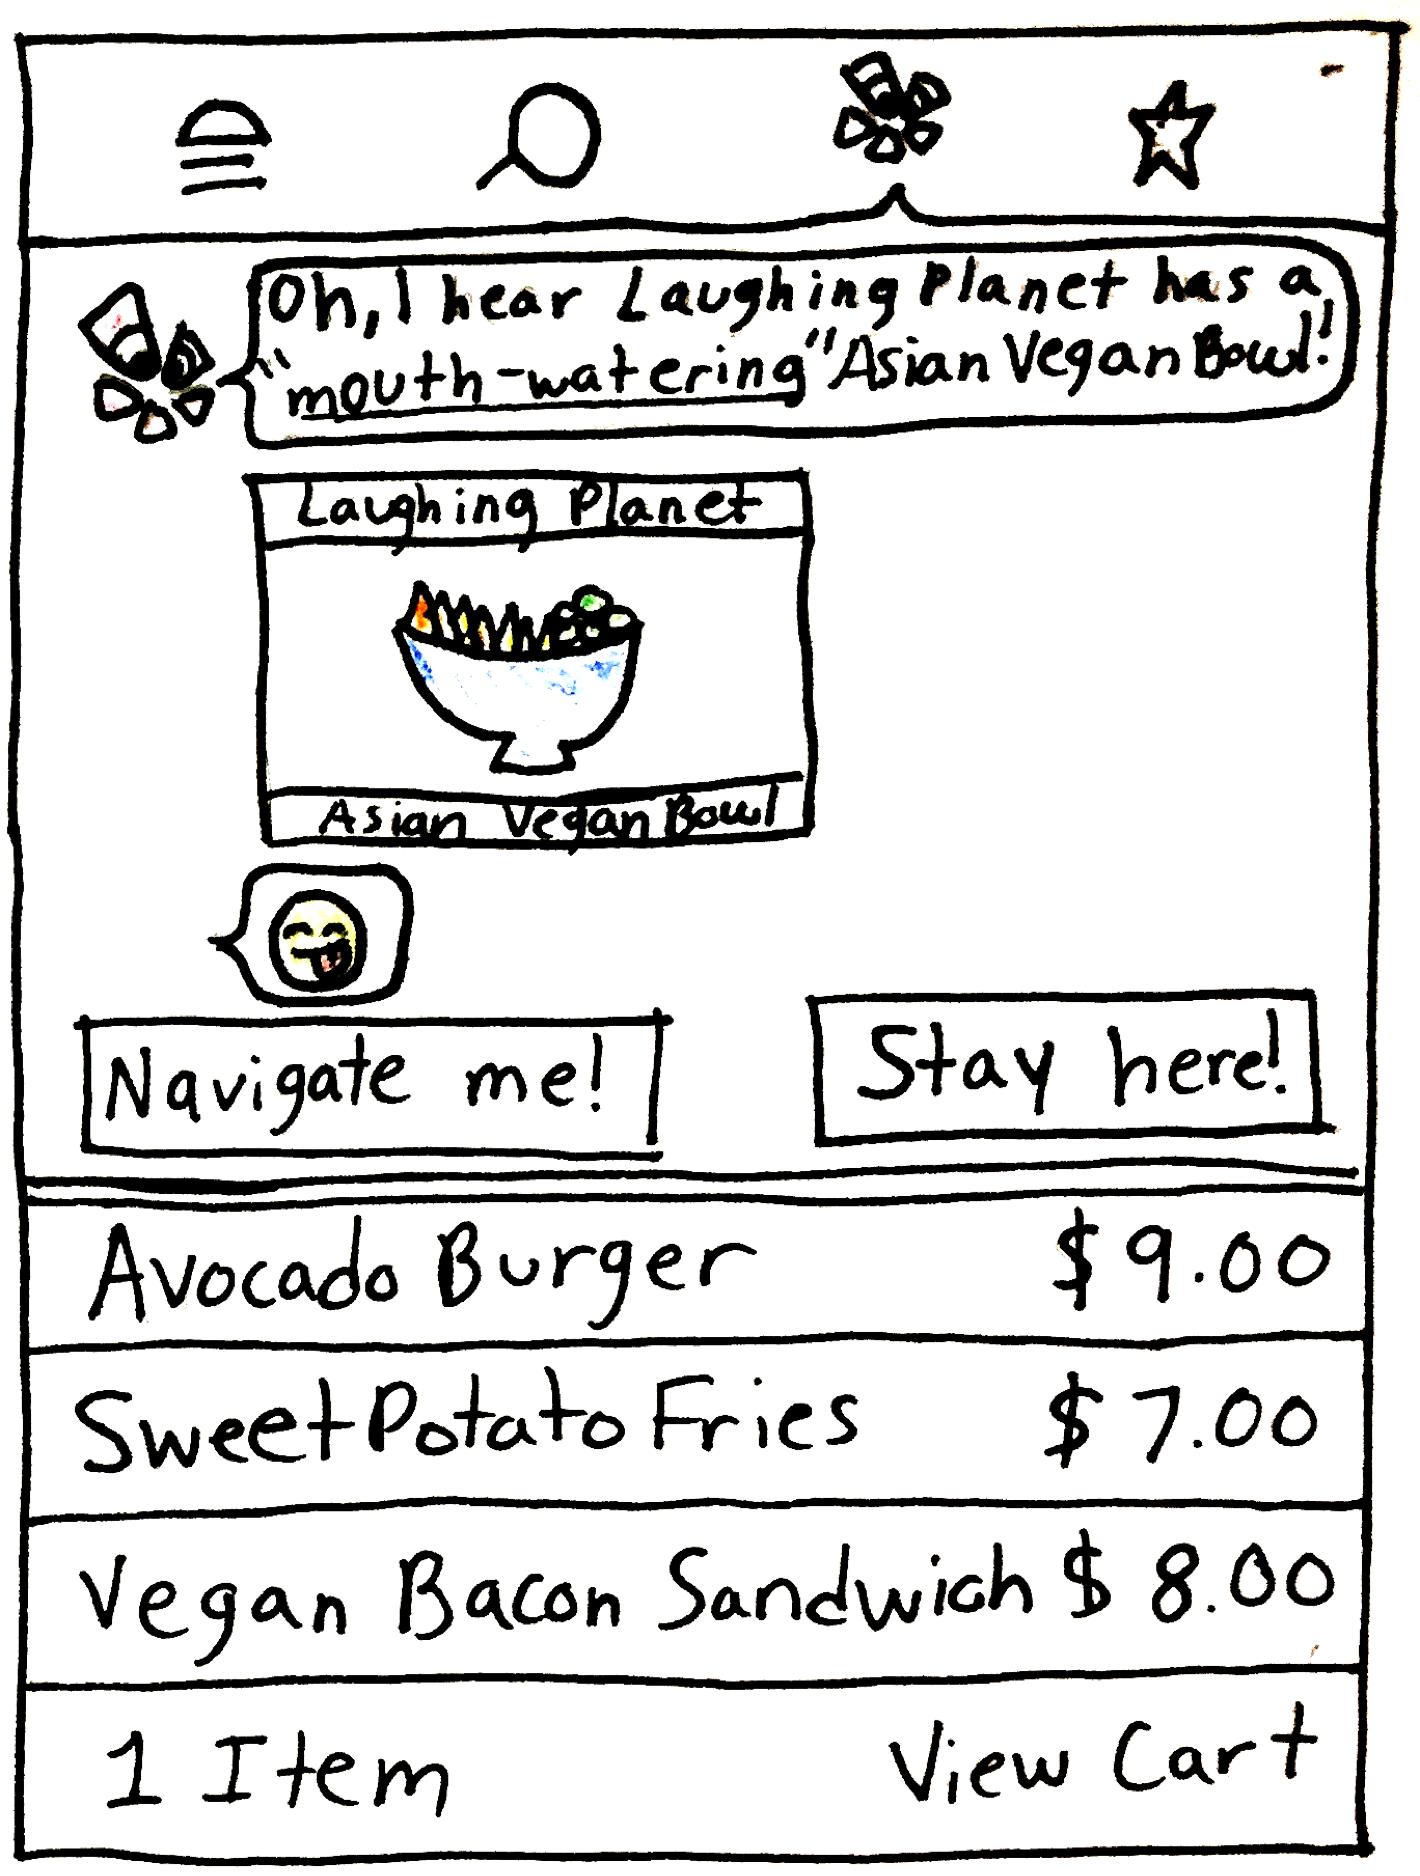 Oh, I hear Laughing Planet has a
"mouth-watering" Asian Vegan Bowl!
Laughing Planet
Asian Vegan Bowl
Navigate me!
Stay here!
Avocado Burger $9.00
Sweet Potato Fries $7.00
Vegan Bacon Sandwich $8.00
1 Item
View Cart